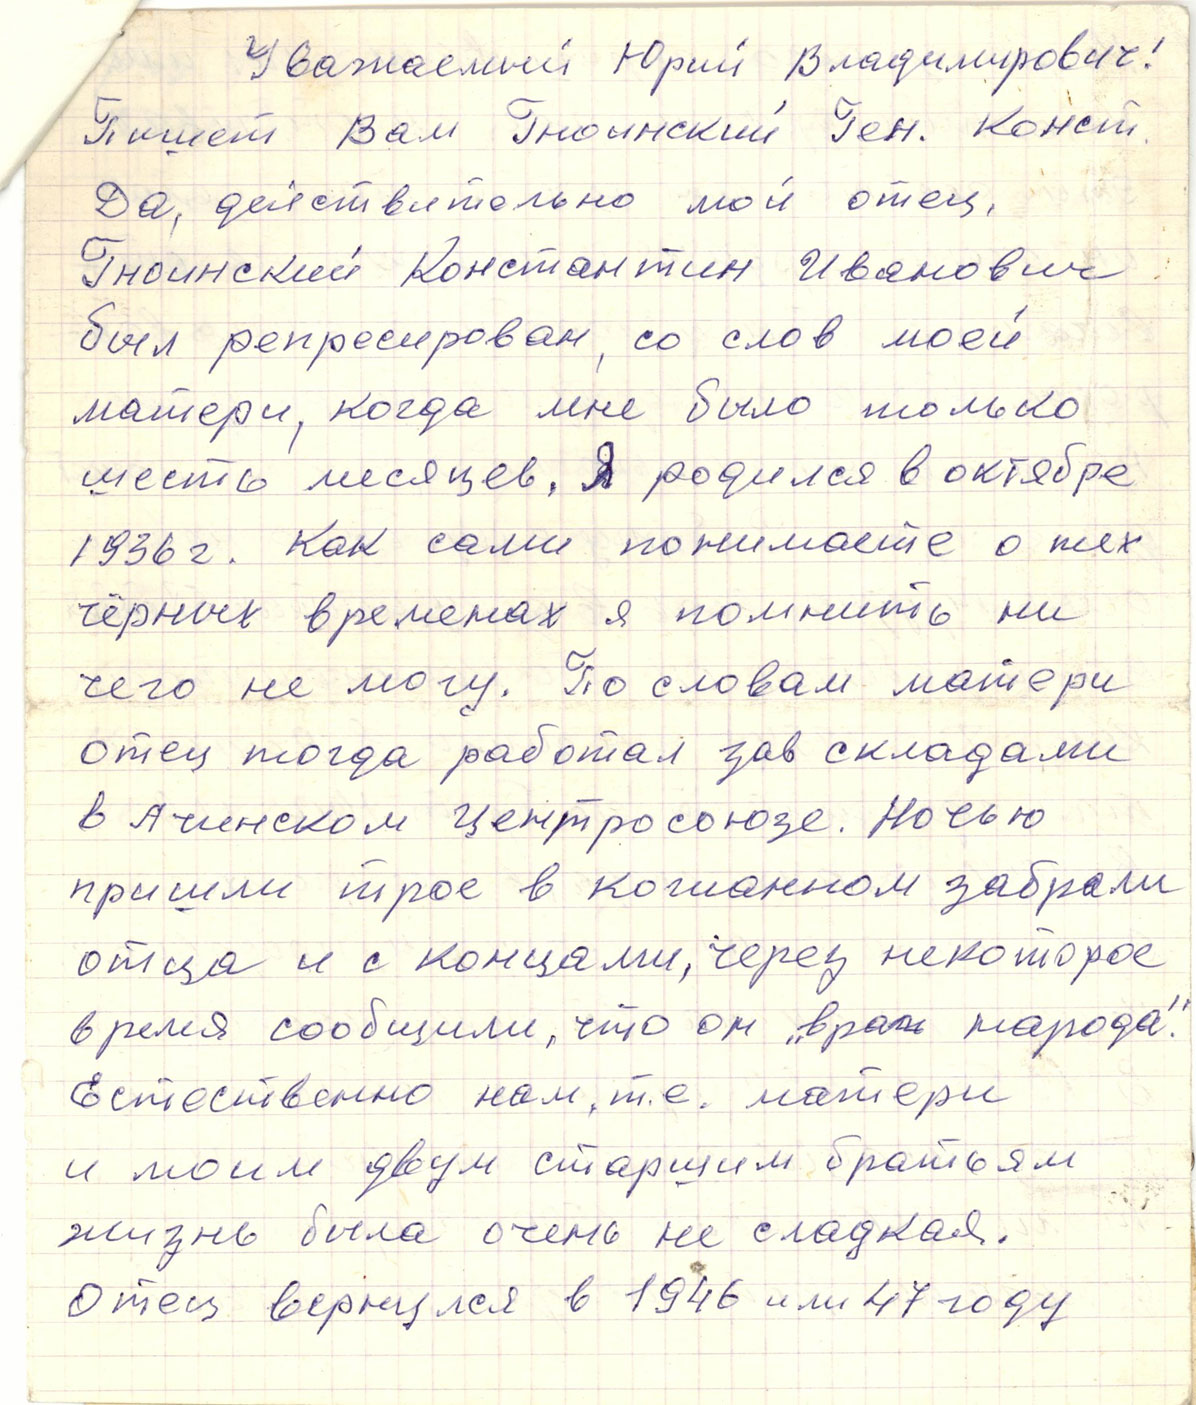 Уважаемый Юрий Владимирович!
Пишет Вам Гноинский Ген. Конст.
Да, действительно мой отец,
Гноинский Константин Иванович
был репресирован, со слов моей
матери, когда мне было только
шесть месяцев. Я родился в октябре
1936г. Как сами понимаете о тех
чёрных временах я помнить ни
чего не могу. По словам матери
отец тогда работал зав складами
в Ачинском Центросоюзе. Ночью
пришли трое в кожанном забрали
отца и с концами, через некоторое
время сообщили, что он „враг народа".
Естественно нам, т.е. матери
и моим двум старшим братьям
жизнь была очень не сладкая.
Отец вернулся в 1946 или 47 году